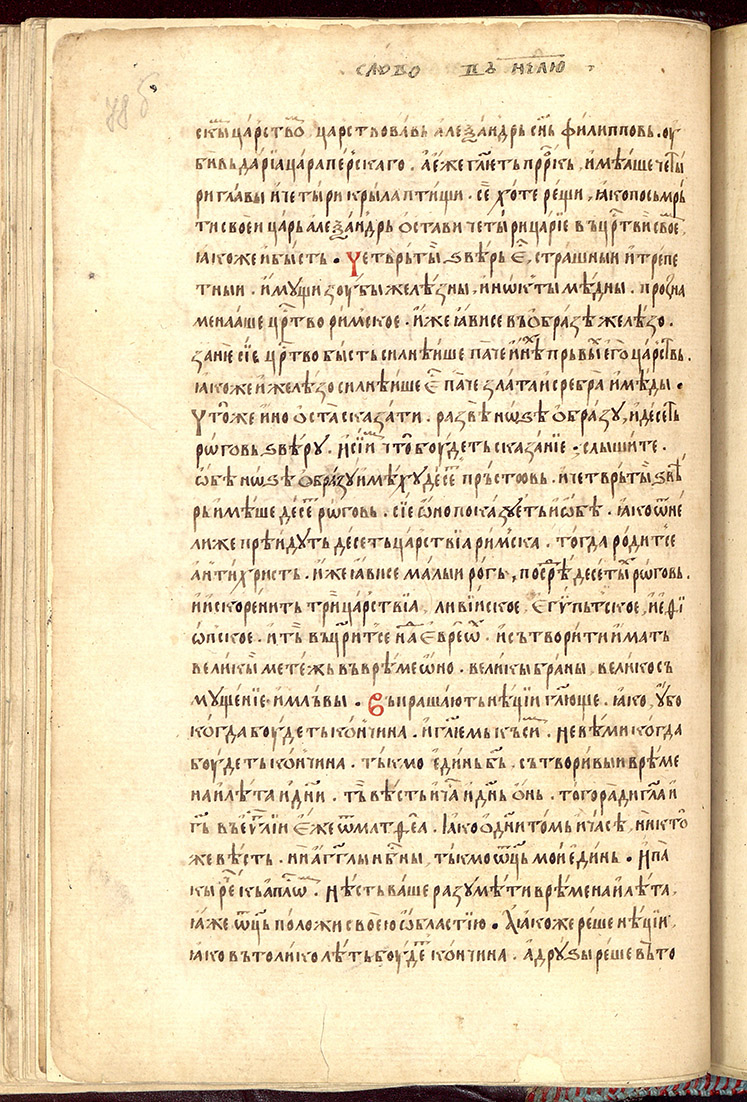 слово въ нєлю
78 б
скы царство, царствовавь алеѯандрь снь филипповь. оу
бивь дарїа цара перскаго. а еже глеть пррокь, имѣаше четы
ри главы и четыри крыла птищи. се хоте рещи, ꙗко по смрь
ти своеи царь алеѯандрь остави четыри царїе въ цртви своемь
ꙗкоже и бысть. Четврьты ѕвѣрь е, страшныи и трепе
тныи. имущи зоубы желѣзны, и нѡкты мѣдны. прозна
менааше цртво римское. иже ꙗви се въ образѣ желѣзо.
занѐ сїе цртво бысть силнѣише паче инѣ прьвы его царствь.
ꙗкоже и желѣзо силнѣише е паче злата и сребра и мѣды.
Что же ино оста сказати. развѣ нѡѕѣ образу, и десеть
рѡговь ѕвѣру. и сїи что боудеть сказанїе. слышите.
ѡбѣ нѡѕѣ образу имѣху десе прьстѡвь. и четврьты ѕвѣ
рь имѣше десе рѡговь. сїе ѡно показуеть и ѡбѣ. ꙗко ѡне
лиже прѣидуть десеть царствїа римска. тогда родитсе
антихристь. иже ꙗви се малыи рогь, посрѣ десеты рѡговь.
и искоренить три царствїа, ливїиское, египьтское, и еѳї
ѡпское. и ть въцритсе на евреѡ. и сътворити имать
великы метежь въ врѣме ѡно. великы браны, велико съ
мущенїе и млъвы. Въпрашають нѣции глюще. ꙗко, убо
когда боудеть кончина. и глемь къ си. не вѣми когда
боудеть кончина. тькмо единь бь. сътворивыи врѣме
на и лѣта и дни. ть вѣсть и ча и днь онь. того ради гла и
гь въ еуглїи еже ѿ матѳеа. ꙗко о дни томь и часѣ, никто
же вѣсть. ни агглы нбны, тькмо ѿць мои единь. и па
кы ре къ аплѡ. нѣсть ваше разумѣти врѣмена и лѣта,
ꙗже ѿць положи своею ѡбластїю. ꙗкоже реше нѣции,
ꙗко въ толико лѣть боуде кончина. а друѕы реше вь то